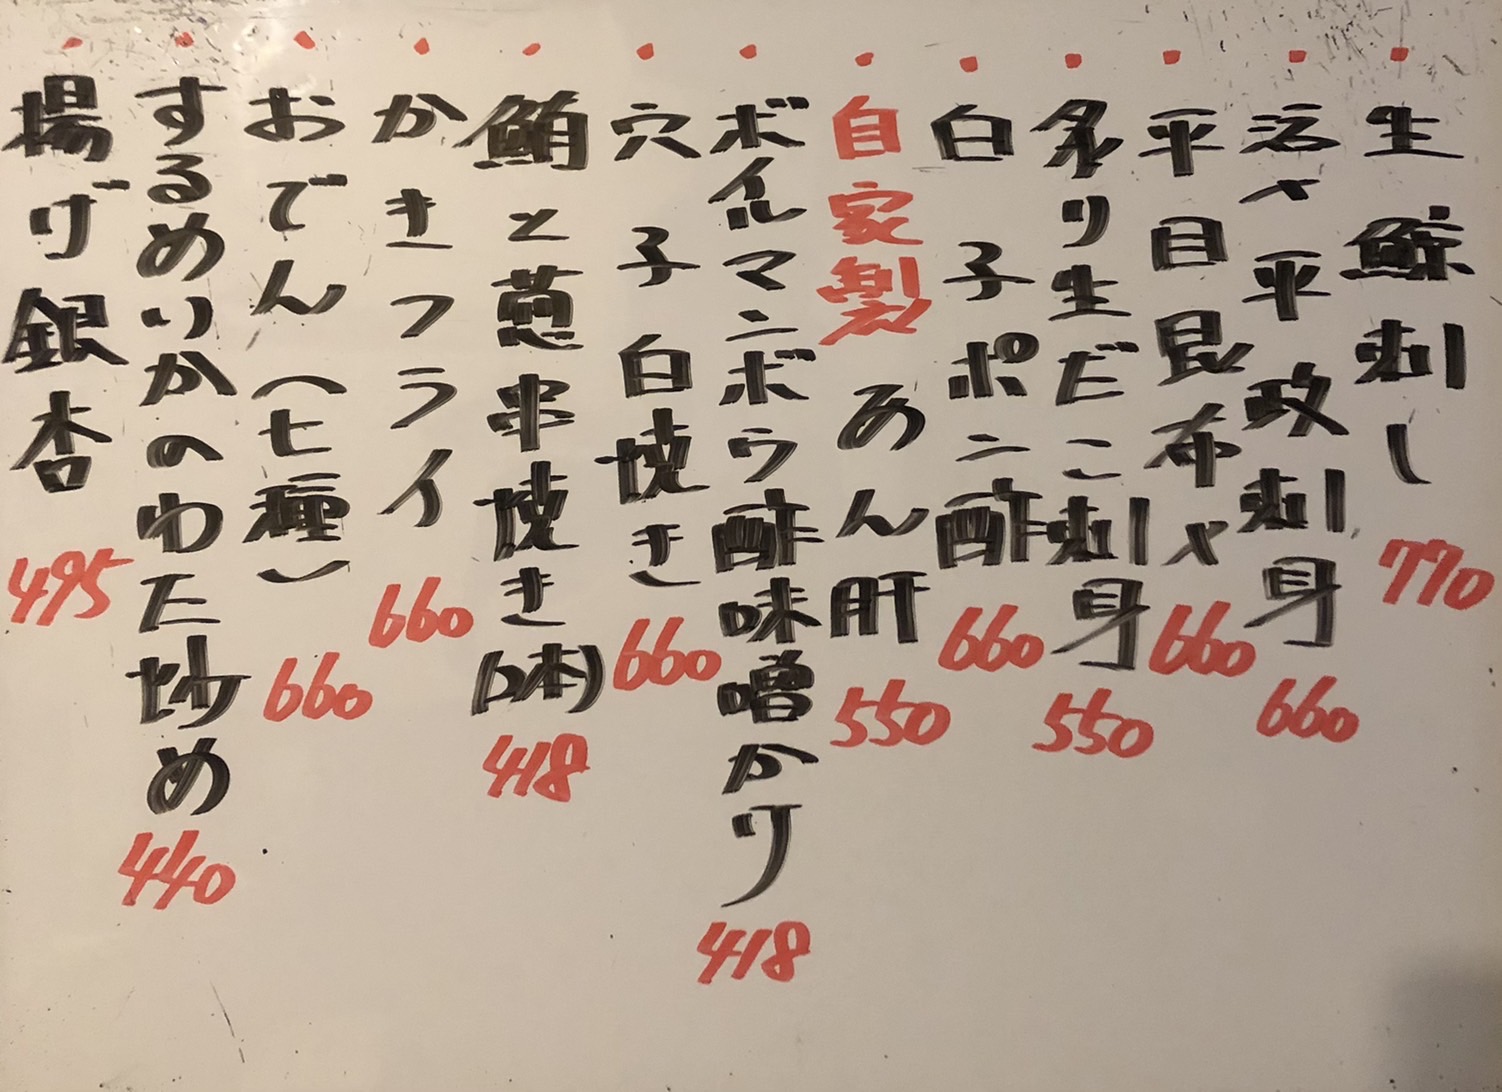 ・生鯨刺し 770
・活〆平政刺身 660
・平目昆布〆 660
・炙り生だこ刺身 550
・白子ポン酢 660
・自家製 あん肝 550
・ボイルマンボウ酢味噌かけ 418
・穴子白焼き 660
・鮪と葱串焼き(2本) 418
・かきフライ 660
・おでん(七種) 660
・するめいかのわた炒め 440
・揚げ銀杏 495